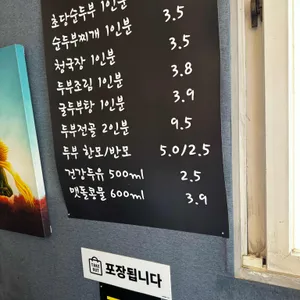 초당순두부 1인분 3.5
순두부찌개 1인분 3.5
청국장 1인분 3.8
두부조림 1인분 3.9
굴두부탕 1인분
두부전골 2인분 9.5
두부 한모/반모 5.0/2.5
건강두유 500ml 2.5
맷돌콩물 600ml 3.9
TAKE OUT
포장됩니다